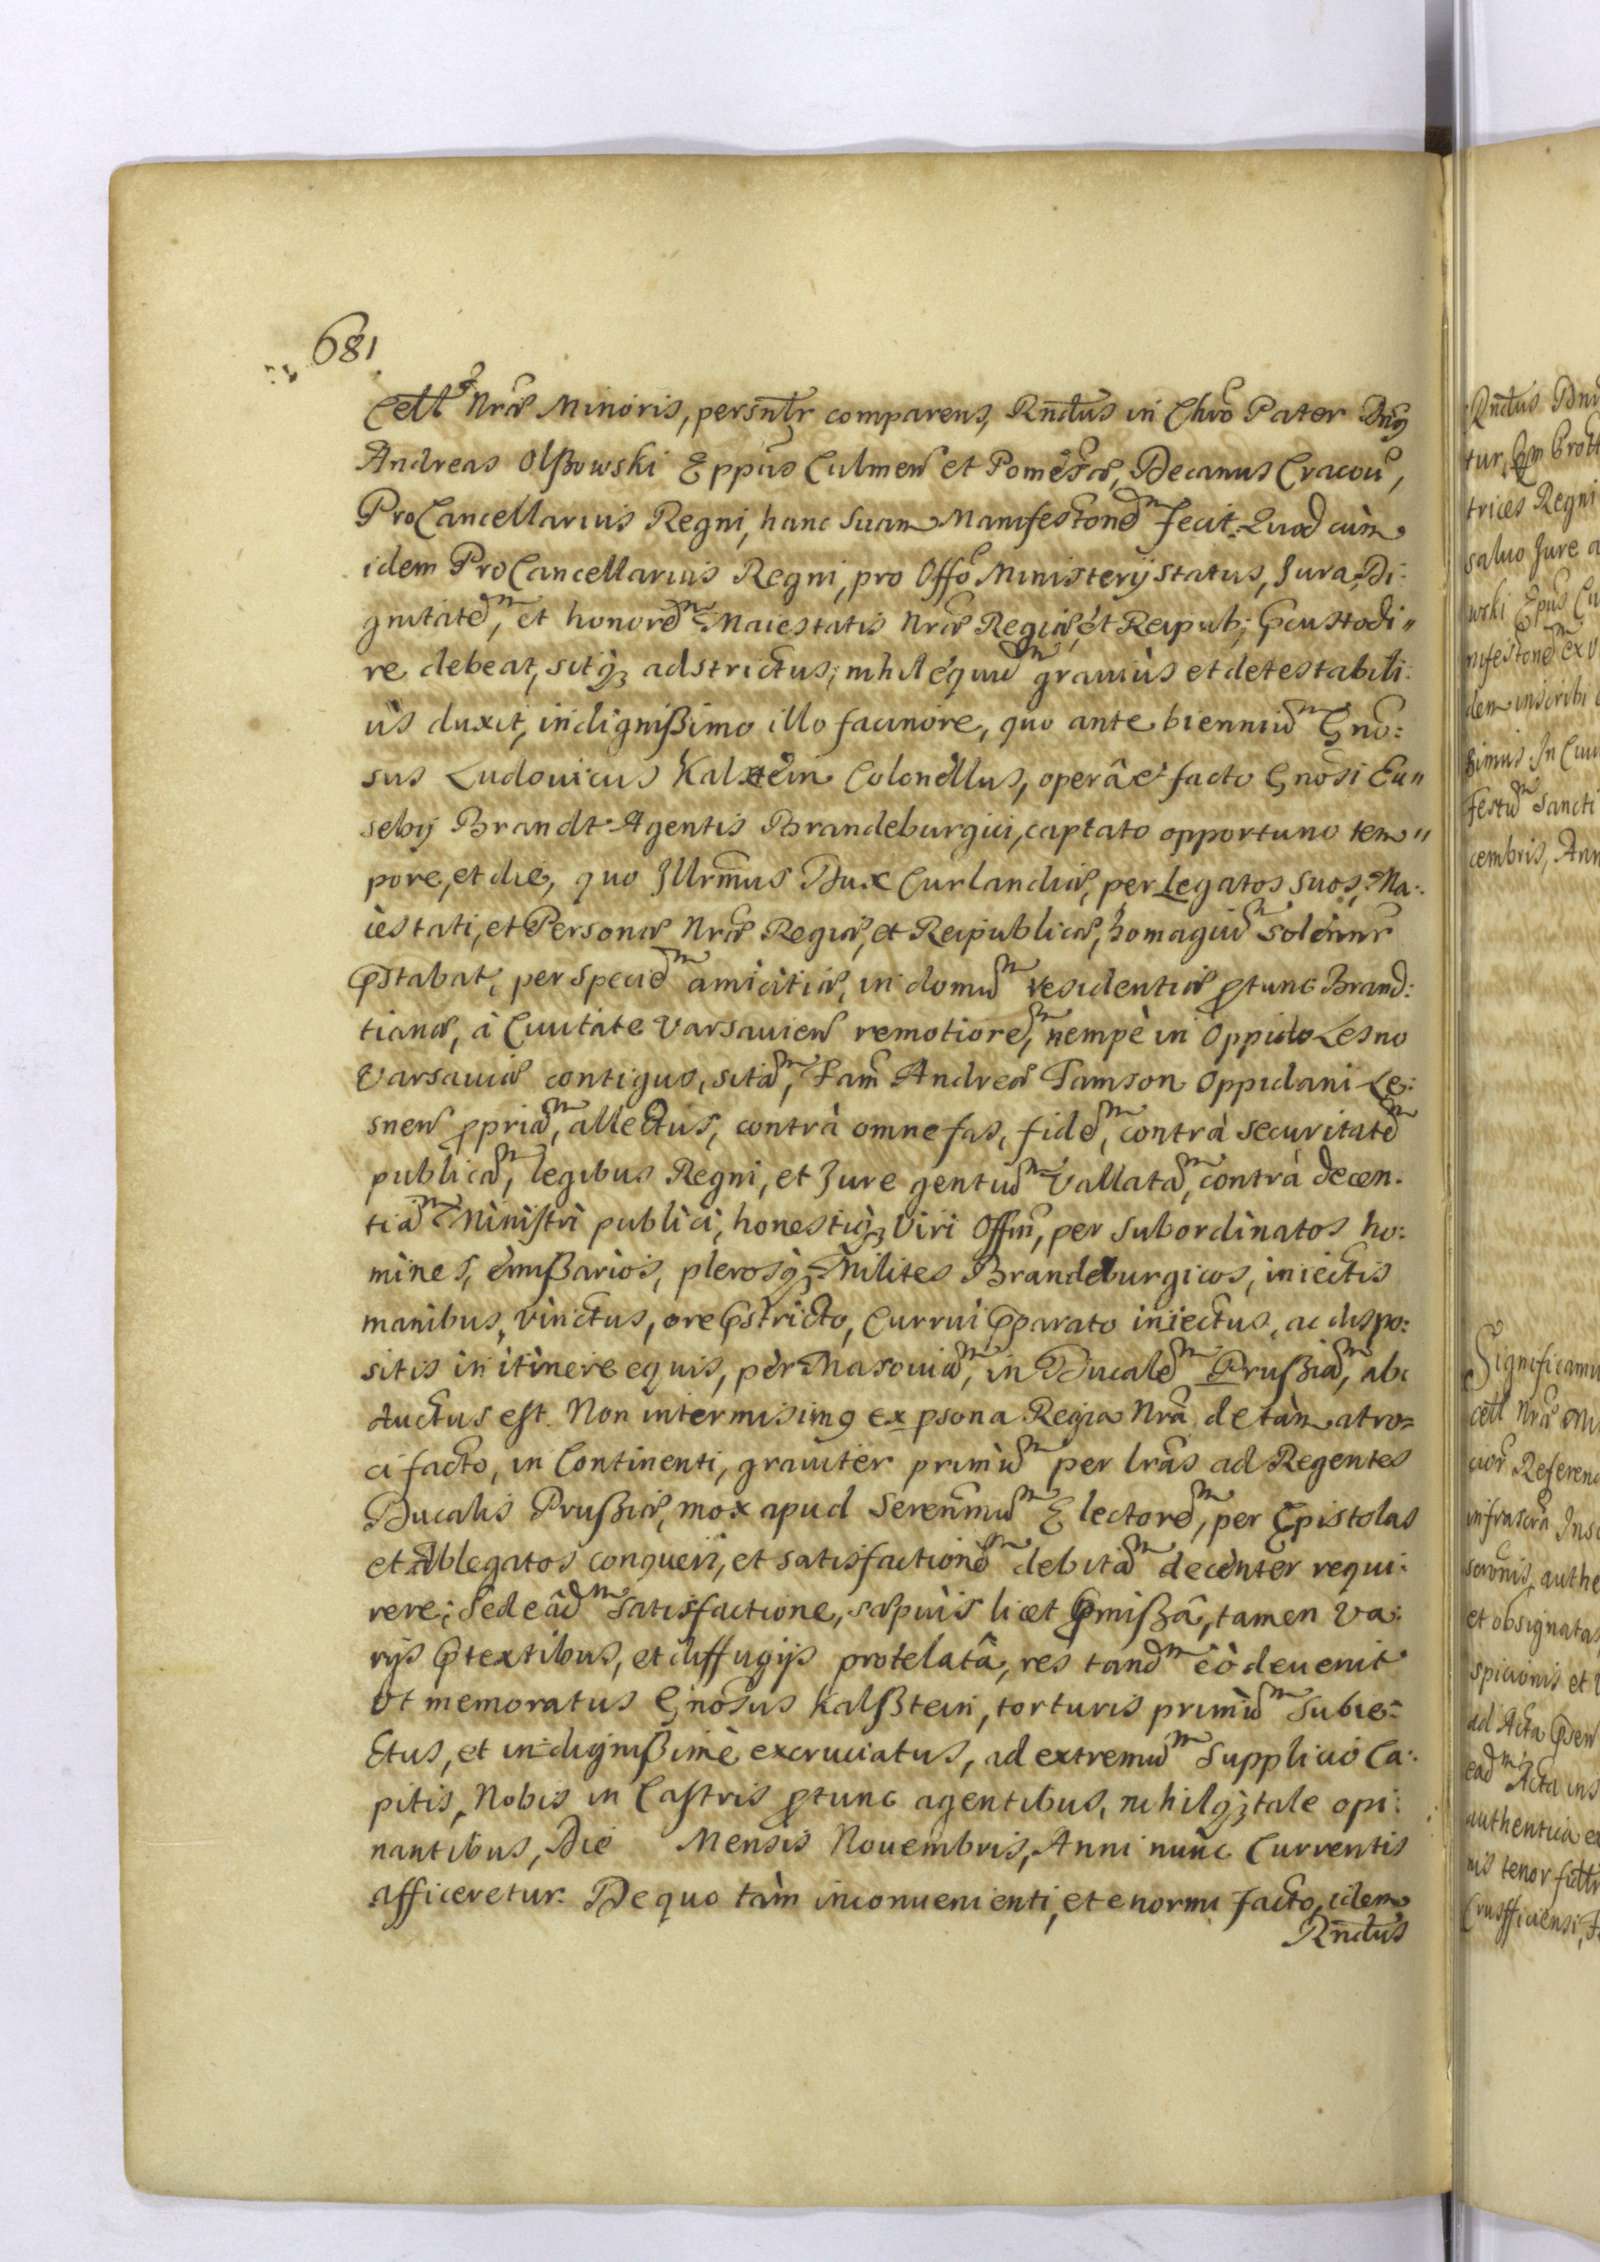 681
Cell. Nræ Minoris, persnlr comparens, Rndus in Chro Pater Dnus
Andreas Olßowski Eppus Culmen et Pomesæ, Decanus Cracou,
ProCancellarius Regni, hanc suam Manifestonem fecit. Quod cùm
idem ProCancellarius Regni, pro Offo Ministerÿ status, Jura, Di:
gnitatem, et honorem Maiestatis Nræ Regiæ, et Reipub; Pcustodi"
re debeat, sitq3 adstrictus; nihil equidem grauiùs et detestabili:
ùs duxit, indignißimo illo facinore, quo ante bienniũm Gno:
sus Ludouicus Kalxtein Colonellus, operâ et facto Gnosi Eu"
sebÿ Brandt Agentis Brandeburgici, captato opportuno tem"
pore, et die, quo Illrmus Dux Curlandiæ, per Legatos suos, Ma:
iestati, et Personæ Nræ Regiæ, et Reipublicæ, homagium solennr
Pstabat, per speciem amicitiæ, in domum residentiæ ptunc Brand:
tianæ, à Ciuitate Varsauien remotiorem, nempè in Oppido Lesno
Varsauiæ contiguo, sitam, Fam Andreæ Tamson Oppidani Le:
snen ppriam, allectus, contrà omne fas, fidem, contrà securitatem
publicam, legibus Regni, et Jure gentium Vallatam, contrà decen:
tiam Ministri publici, honestiq3 Viri Offm, per subordinatos ho:
mines, emißarios, plerosq3 Milites Brandeburgicos, iniectis
manibus, vinctus, ore Pstricto, Currui Pparato iniectus, ac dispo:
sitis in itinere equis, per Masouiam, in Ducalem Prußiam, ab:
ductus est. Non intermisimq ex psona Regia Nrâ de tàm atro=
ci facto, in Continenti, grauiter primùm per lras ad Regentes
Ducalis Prußiæ, mox apud Serenmum Electorem, per Epistolas
et Ablegatos conqueri, et satisfactionem debitam decenter requi:
rere; sed eâdm satisfactione, sæpiùs licet Pmißâ, tamen va:
rÿs Ptextibus, et diffugÿs protelatâ, res tandm eò deuenit
Vt memoratus Gnosus Kalßtein, torturis primùm subie=
ctus, et indignißimè excruciatus, ad extremum Supplicio Ca:
pitis, Nobis in Castris ptunc agentibus, nihilq3 tale opi:
nantibus, Die Mensis Nouembris, Anni nunc Currentis
afficeretur. De quo tàm inconuenienti, et enormi facto, idem
Rndus